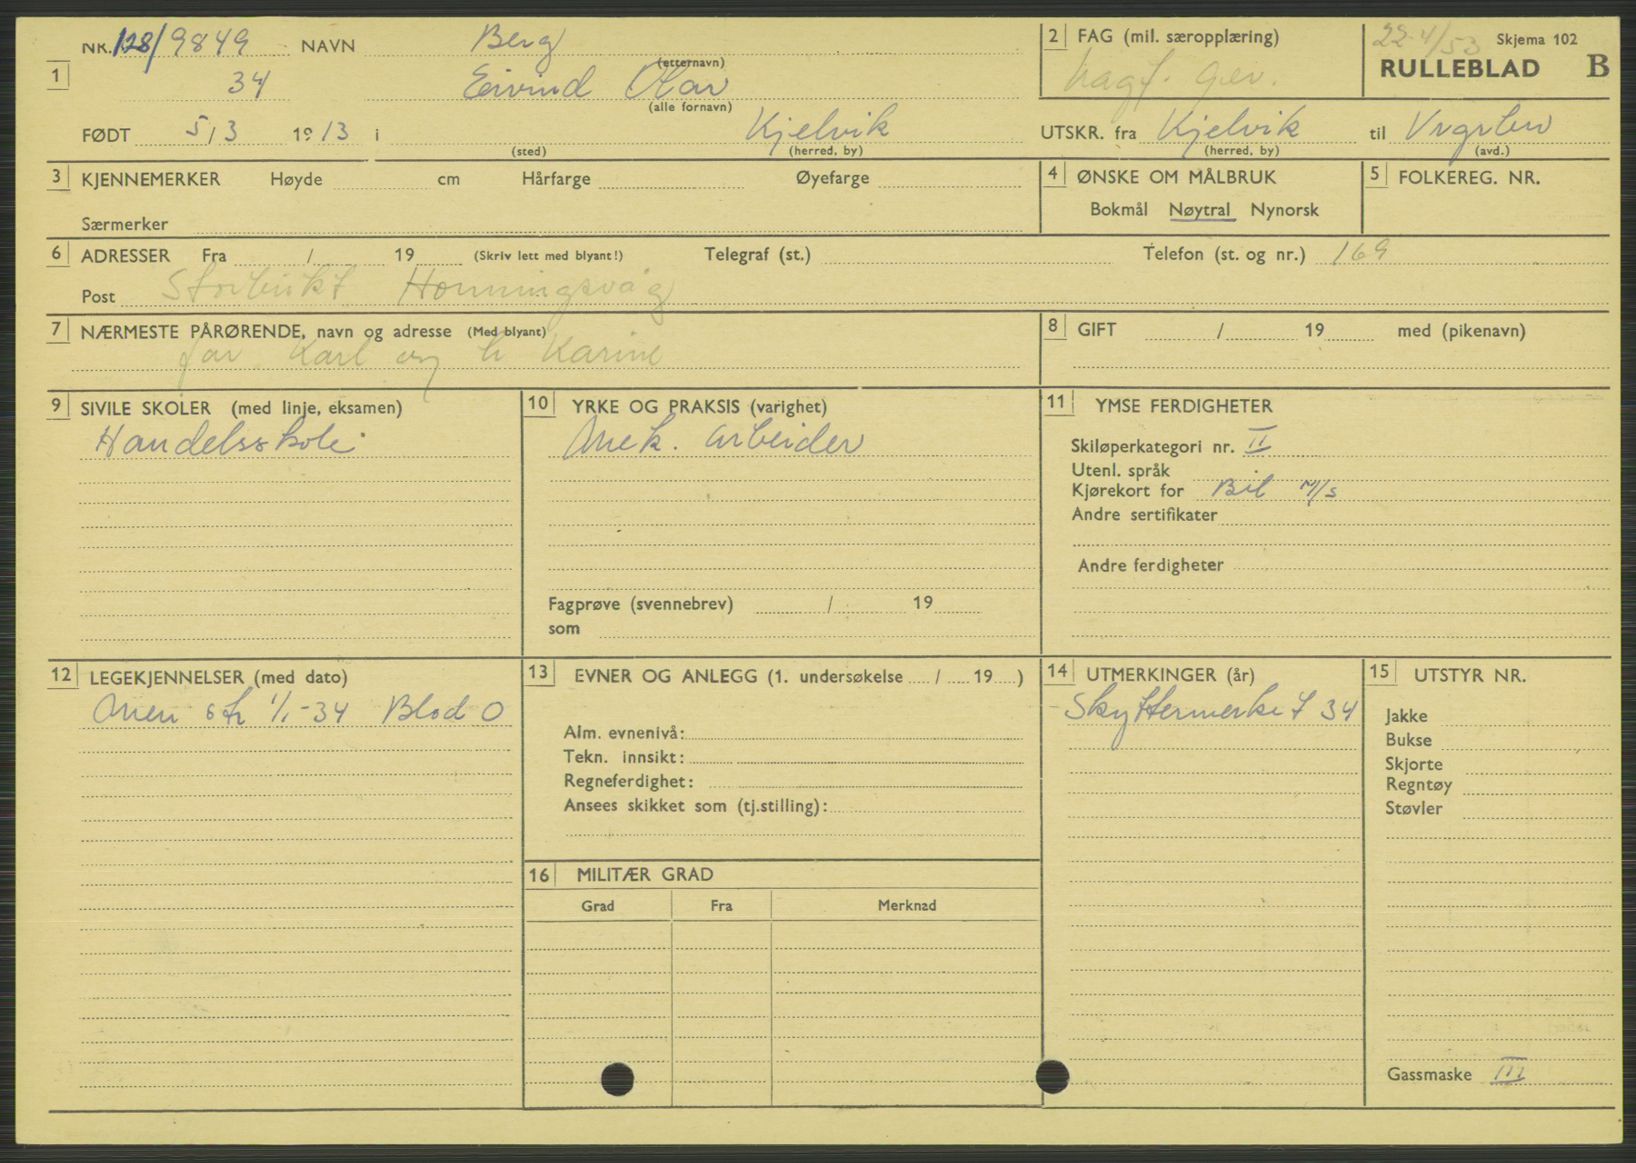 NR. 128/9849 NAVN Berg
(etternavn)
1 34 Eivind Olav
(alle fornavn)
FØDT 5/3 1913 i Kjelvik
(sted) (herred, by)
2 FAG (mil. særopplæring)
gev.
22-4/53 Skjema 102
RULLEBLAD B
UTSKR. fra Kjelvik til
(herred, by) (avd.)
3 KJENNEMERKER Høyde cm Hårfarge Øyefarge
Særmerker
4 ØNSKE OM MÅLBRUK
Bokmål Nøytral Nynorsk
5 FOLKEREG. NR.
6 ADRESSER Fra / 19 (Skriv lett med blyant!) Telegraf (st.) Telefon (st. og nr.) 169
Post Storbukt Honningsvåg
7 NÆRMESTE PÅRØRENDE, navn og adresse (Med blyant)
far Karl og h Karine
8 GIFT / 19 med (pikenavn)
9 SIVILE SKOLER (med linje, eksamen)
Handelsskole
10 YRKE OG PRAKSIS (varighet)
Mek. arbeider
Fagprøve (svennebrev) / 19
som
11 YMSE FERDIGHETER
Skiløperkategori nr. II
Utenl. språk
Kjørekort for Bil M/s
Andre sertifikater
Andre ferdigheter
12 LEGEKJENNELSER (med dato)
1/1-34 Blod O
13 EVNER OG ANLEGG (1. undersøkelse / 19 )
Alm. evnenivå:
Tekn. innsikt:
Regneferdighet:
Ansees skikket som (tj.stilling):
14 UTMERKINGER (år)
Skyttermerket 34
15 UTSTYR NR.
Jakke
Bukse
Skjorte
Regntøy
Støvler
Gassmaske III
16 MILITÆR GRAD
Grad Fra Merknad